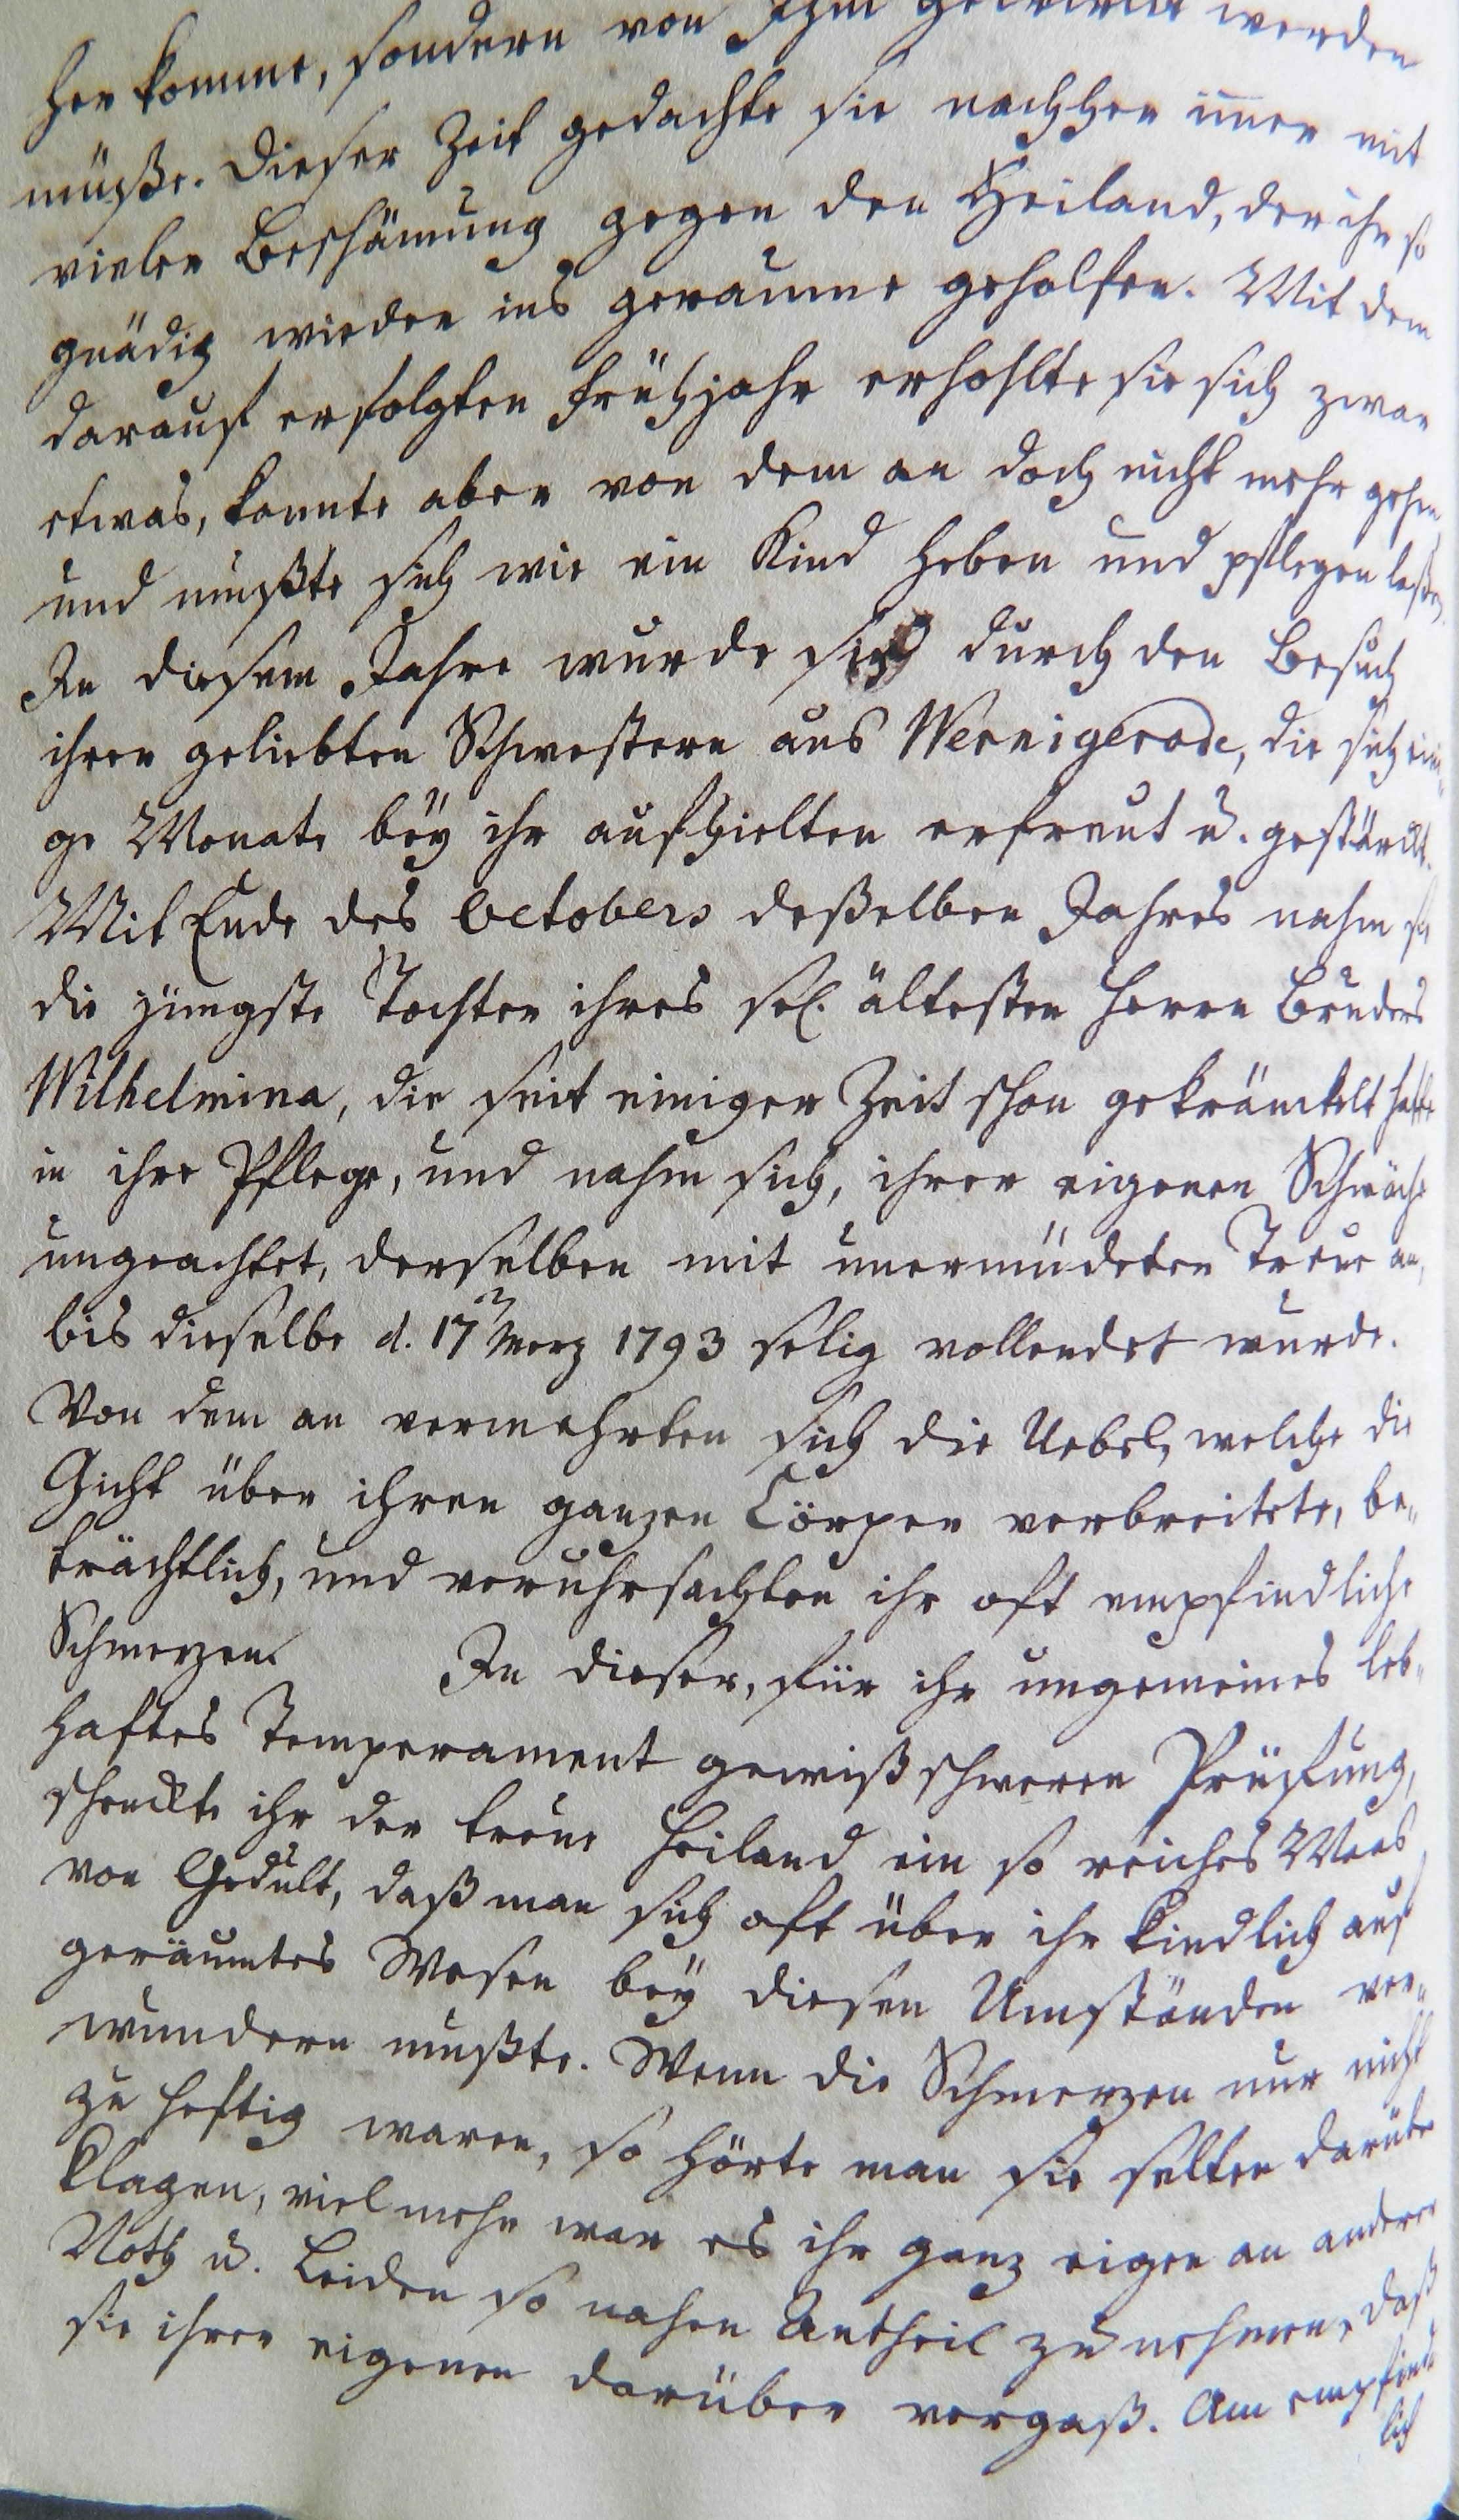 her komme, sondern von Ihm gewirkt werden
müße. Dieser Zeit gedachte sie nachher im̅er mit
vieler Beschämung gegen den Heiland, der ihr so
gnädig wieder ins geraume geholfen. Mit dem
darauf erfolgten Frühjahr erhohlte sie sich zwar
etwas, konnte aber von dem an doch nicht mehr gehen
und mußte sich wie ein Kind heben und pflegen laßen.
In diesem Jahre wurde sie durch den Besuch
ihrer geliebten Schwestern aus Wernigerode, die sich eini„
ge Monate bey ihr aufhielten erfreut u. gestärckt.
Mit Ende des Octobers deßelben Jahres nahm sie
die jüngste Tochter ihres sel. ältesten Herrn Bruders
Wilhelmina, die seit einiger Zeit schon gekränckelt hatte
in ihre Pflege, und nahm sich, ihrer eigenen Schwäche
ungeachtet, derselben mit unermüdeter Treue an,
bis dieselbe d. 17n Merz 1793 selig vollendet wurde.
Von dem an vermehrten sich die Uebel, welche die
Gicht über ihren ganzen Cörper verbreitete, be„
trächtlich, und veruhrsachten ihr oft empfindliche
Schmerzen. In dieser, für ihr ungemeines leb„
haftes Temperament gewiß schweren Prüfung,
schenckte ihr der treue Heiland ein so reiches Maas
von Gedult, daß man sich oft über ihr kindlich auf
geräumtes Wesen bey diesen Umständen ver„
wundern mußte. Wenn die Schmerzen nur nicht
zu heftig waren, so hörte man sie selten darüber
klagen, viel mehr war es ihr ganz eigen an anderer
Noth u. Leiden so nahen Antheil zu nehmen, daß
sie ihrer eigenen darüber vergaß. Am empfind„
lich